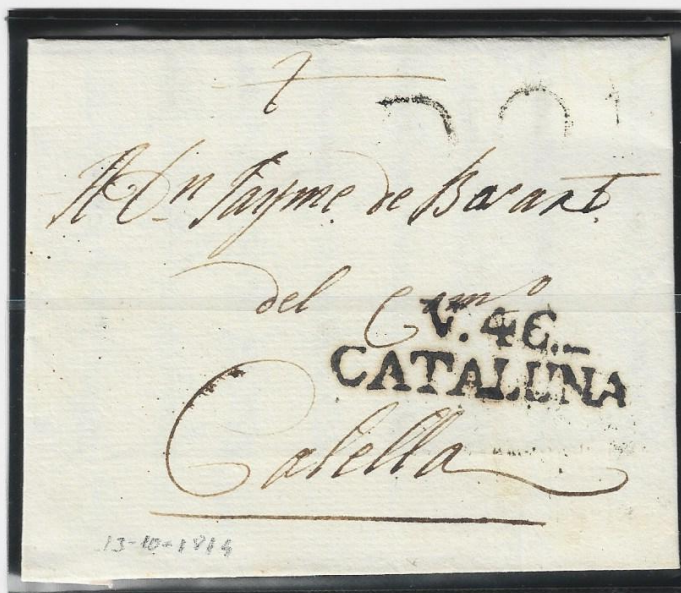 A Dn Jayme de Bacart
del Camo
V. 4E.
CATALUNA
Calella
13-10-1814